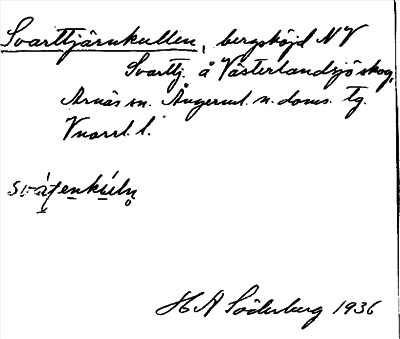 Svarttjärnkullen, bergshöjd NV
Svarttj. å Västerlandsjö skog,
Arnäs sn. Ångerml. n. doms. tg.
Vnorrl. l.
H A Söderberg 1936